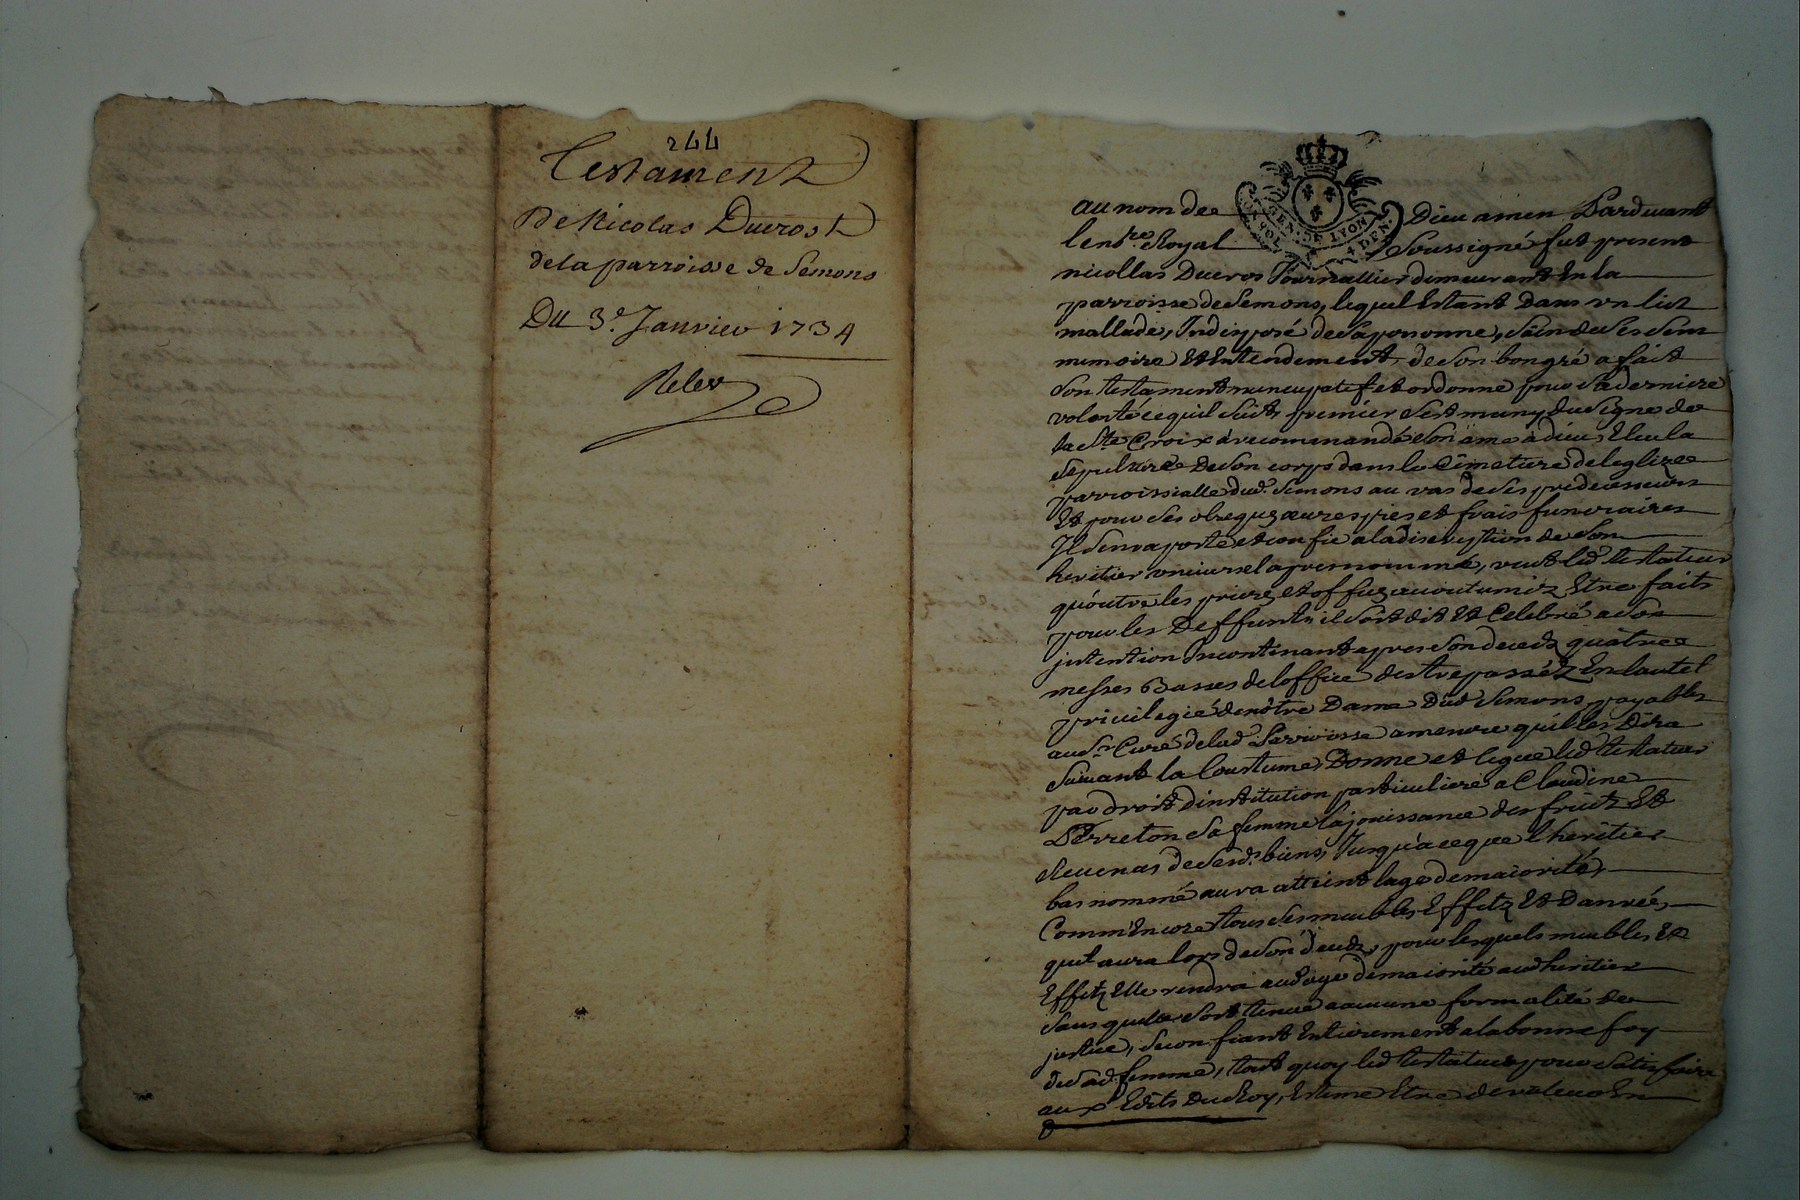 244
Testament
De Nicolas Ducrost
de la parroisse de Semons
Du 3e. Janvier 1734
GEN. DE LYON
au nom de Dieu amen Pardevant
le nore. Royal Soussigné fut present
nicollas Ducros Journallier demeurant En la
parroisse de Semons, lequel Estant Dans un lict
mallade, Indisposé de Sa personne, Sain de Ses Sens
memoire Et Entendement, de Son bon gré a fait
Son testament nuncupatif et ordonne pour Sa derniere
volonté ce qu'il Suit, premier S'est muny du Signe de
la Ste. Croix a recommandé Son ame a dieu, Eleu la
Sepulture De Son corps dans le Cimetiere de leglize
parroissialle dud. Semons au vas de Ses predecesseurs
Et pour Ses obseques œuvres pies et frais funeraires
Il S'en raporte et confie a la discreption de Son
heritier universel apres nommé, veut led. testateur
qu'outre les prieres et offices accoutumez Etre faits
pour les Deffunts il Soit dit Et Celebré a Son
jntention Incontinant apres Son decedz quatre
messes Basses de l'office des trepassez En lautel
privilegié de nôtre Dame Dud Semons, payables
au Sr. Curé de lad. Parroisse a mesure qu'il les Dira
Suivant la Coustume, Donne et legue led testateur
par droit d'institution particuliere a Claudine
Perreton Sa femme la jouissance des fruitz Et
Revenus de Sesd. biens, Jusqu'a ce que l'heritier
bas nommé aura atteint lage de majorité,
Comm'Encore tous Ses meubles, Effetz Et Danrées,
qu'il aura lors de Son deces, pour lesquels meubles Et
Effetz Elle rendra aud age de majorité aud heritier
Sans quelle Soit tenue a aucune formalité de
justice, Se confiant Entierement a la bonne foy
de Sad. femme, tout quoy led testateur pour Satisfaire
aux Edits Du Roy, Estime Etre de valeur En